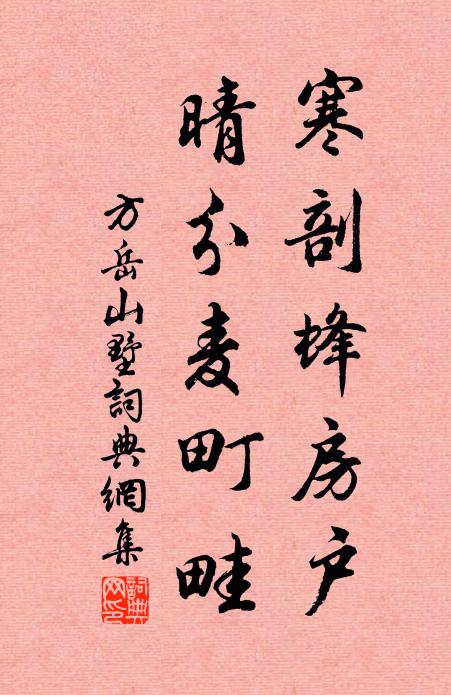 寒剖蜂房户
晴分麦町畦
方岳山墅詞典網集
詞典網印